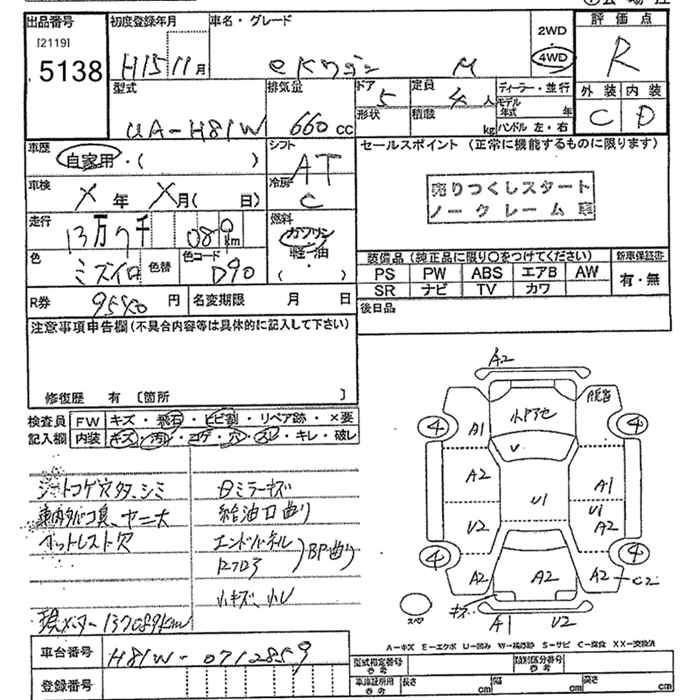 出品番号 初度登録年月 車名・グレード 評価点
[2119] 2WD
5138 H15 11月 eKワゴン M 4WD R
型式 排気量 ドア 定員 ディーラー・並行 外装 内装
UA-H81W 660cc 5 4人 モデル年式 年 C D
形状 積載 kg ハンドル 左・右
車歴 シフト セールスポイント (正常に機能するものに限ります)
自家用・( ) AT
車検 冷房 売りつくしスタート
X年 X月( 日) C ノークレーム車
走行 燃料
13万7千080km ガソリン
色 色替 色コード 軽油 装備品 (純正品に限り○をつけてください) 新車保証書
ミズイロ D90 ・( ) PS PW ABS エアB AW 有・無
SR ナビ TV カワ
R券 円 名変期限 月 日 後日品
注意事項申告欄(不具合内容等は具体的に記入して下さい)
修復歴 有 [箇所 ]
検査員 FW キズ・飛石・ヒビ割・リペア跡・×要
記入欄 内装 キズ・汚レ・コゲ・穴・スレ・キレ・破レ
シートコゲ穴タ、シミ
車内タバコ臭、ヤニ大
日ミラーキズ
給油口曲り
エンドパネル
BP曲り
小キズ、小レ
現メーター137089km
A2
A1 V 4 4
A2 U1 A1
U2 U1
A2
4 4
A2 A2 A2 C2
キズ A1 U2
A-キズ E-エクボ U-凹み S-サビ C-腐食 XX-交換済
車台番号 H81W-0712859 型式指定番号 参考 類別区分番号 参考
登録番号 車庫証明用 参考 長さ cm 幅 cm 高さ cm